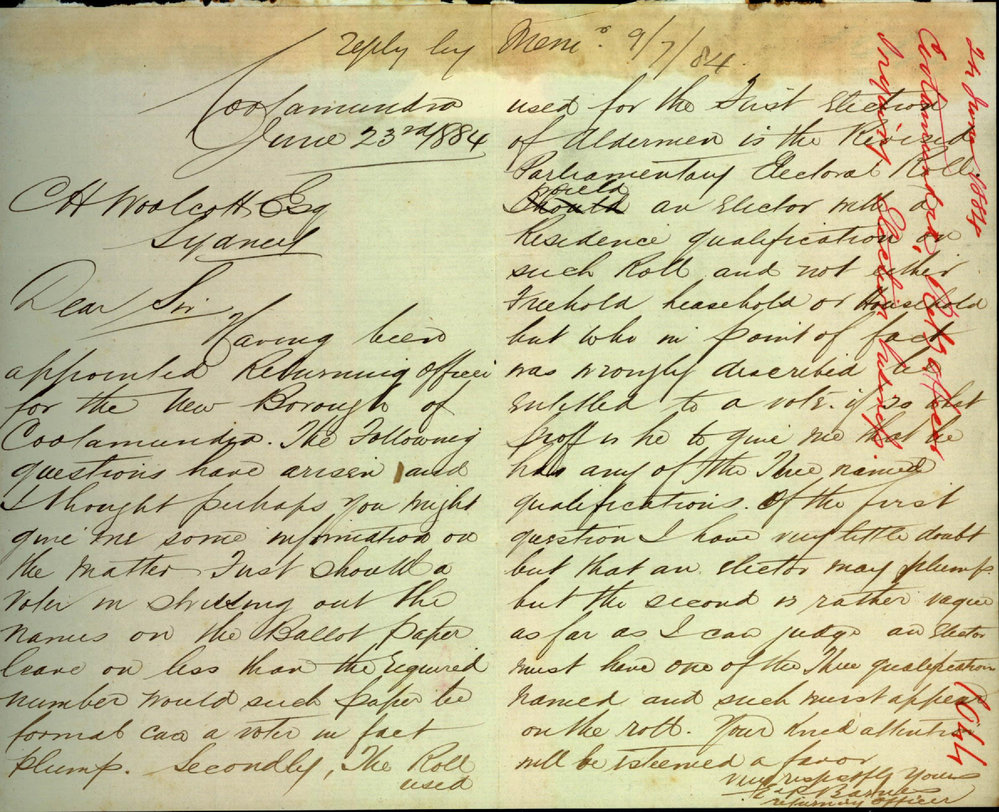 reply by Memo. 9/7/84.
Cootamundra
June 23rd 1884
C H Woolcott Esq
Sydney
Dear Sir
Having been
appointed Returning Officer
for the New Borough of
Cootamundra. The Following
questions have arisen and
I thought perhaps you might
give me some information on
the matter First should a
voter in striking out the
names on the Ballot paper
leave on less than the required
number would such paper be
formal can a voter in fact
plump. Secondly, The Roll
used
used for the First Election
of Aldermen is the Revised
Parliamentary Electoral Roll
would
Should an Elector with a
Residence qualification on
such Roll and not either
Freehold leasehold or Household
but who in point of fact
was wrongly described be
entitled to a vote. if so what
proff is he to give me that he
has any of the Three named
qualifications. Of the first
question I have very little doubt
but that an Elector may plump
but the second is rather vague
as far as I can judge an Elector
must have one of the Three qualification
named and such must appear
on the roll. Your kind attention
will be esteemed a favor
very respctfly Yours
Barnes
returning officer
24 June 1884
Cootamundra, Retg officer
Inquiring Election business.
1044